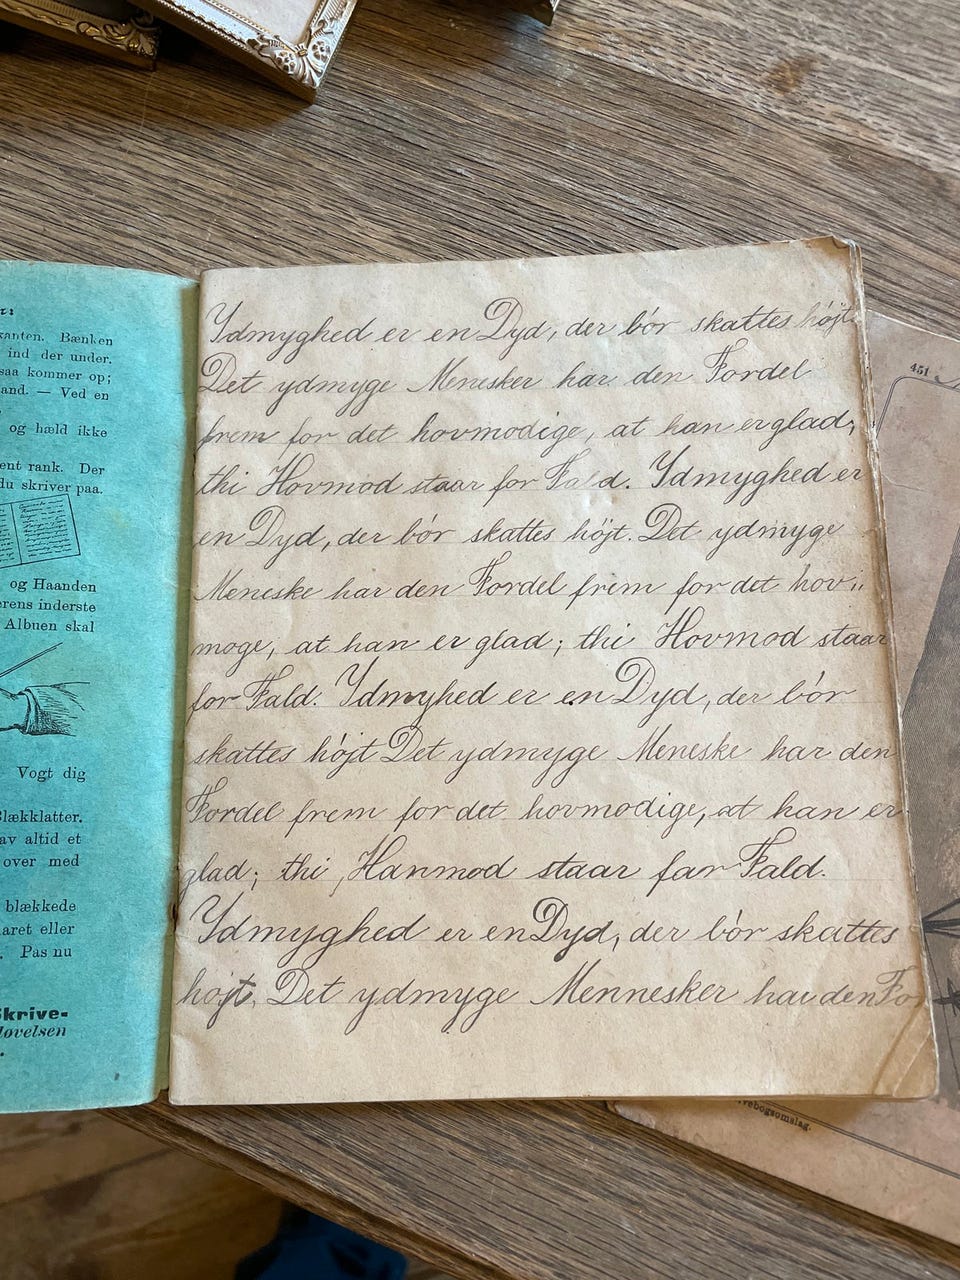 kanten. Bænken
ind der under.
saa kommer op;
and. — Ved en
og hæld ikke
ent rank. Der
du skriver paa.
og Haanden
erens inderste
Albuen skal
Vogt dig
Blækklatter.
av altid et
over med
blækkede
aret eller
Pas nu
Skrive-
løvelsen
Ydmyghed er en Dyd, der bör skattes höjt.
Det ydmyge Menesker har den Fordel
frem for det hovmodige, at han er glad;
thi Hovmod staar for Fald. Ydmyghed er
en Dyd, der bör skattes höjt. Det ydmyge
Meneske har den Fordel frem for det hov
moge, at han er glad; thi Hovmod staar
for Fald. Ydmyhed er en Dyd, der bör
skattes höjt Det ydmyge Meneske har den
Fordel frem for det hovmodige, at han er
glad; thi Hanmod staar far Fald.
Ydmyghed er en Dyd, der bör skattes
höjt. Det ydmyge Mennesker har den Fo
451
vebogsomslag.